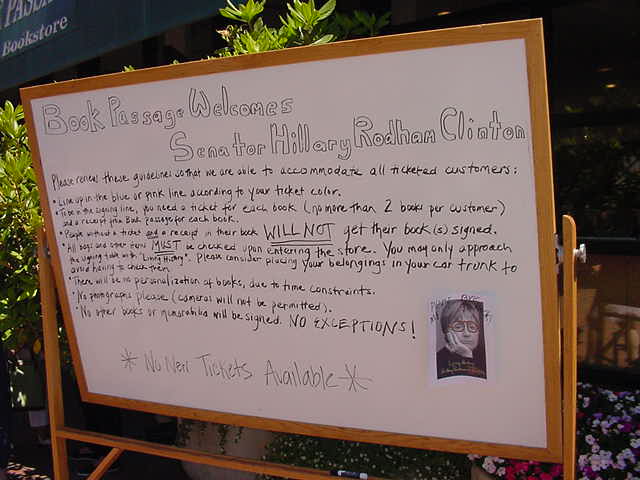 PASSA
Bookstore
Book Passage Welcomes
Senator Hillary Rodham Clinton
Please reveiw these guidelines so that we are able to accommodate all ticketed customers:
• Line up in the blue or pink line acording to your ticket color.
• To be in the signing line, you need a ticket for each book (no more than 2 books per customer)
and a receipt from Book Passage for each book.
• People without a ticket and a receipt in their book WILL NOT get their book(s) signed.
• All bags and other items MUST be checked upon entering the store. You may only approach
the signing table with "Living History". Please consider placing your belongings in your car trunk to
avoid having to check them.
• There will be no personalization of books, due to time constraints.
• No photographs please (cameras will not be permitted).
• No other books or memorabilia will be signed. NO EXCEPTIONS!
* No New Tickets Available *